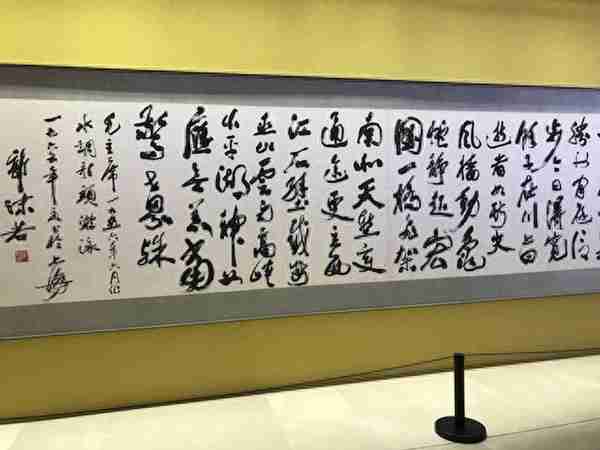 勝似闲庭信
步今日得寬
餘子在川上曰
逝者如斯夫
风檣動龟
蛇静起宏
圖一橋飞架
南北天塹变
通途更立西
江石壁截断
巫山雲雨高峡
出平湖神女
應无恙當
驚世界殊
毛主席一九五六年六月作
水調歌頭游泳
一九六五年於上海
郭沫若